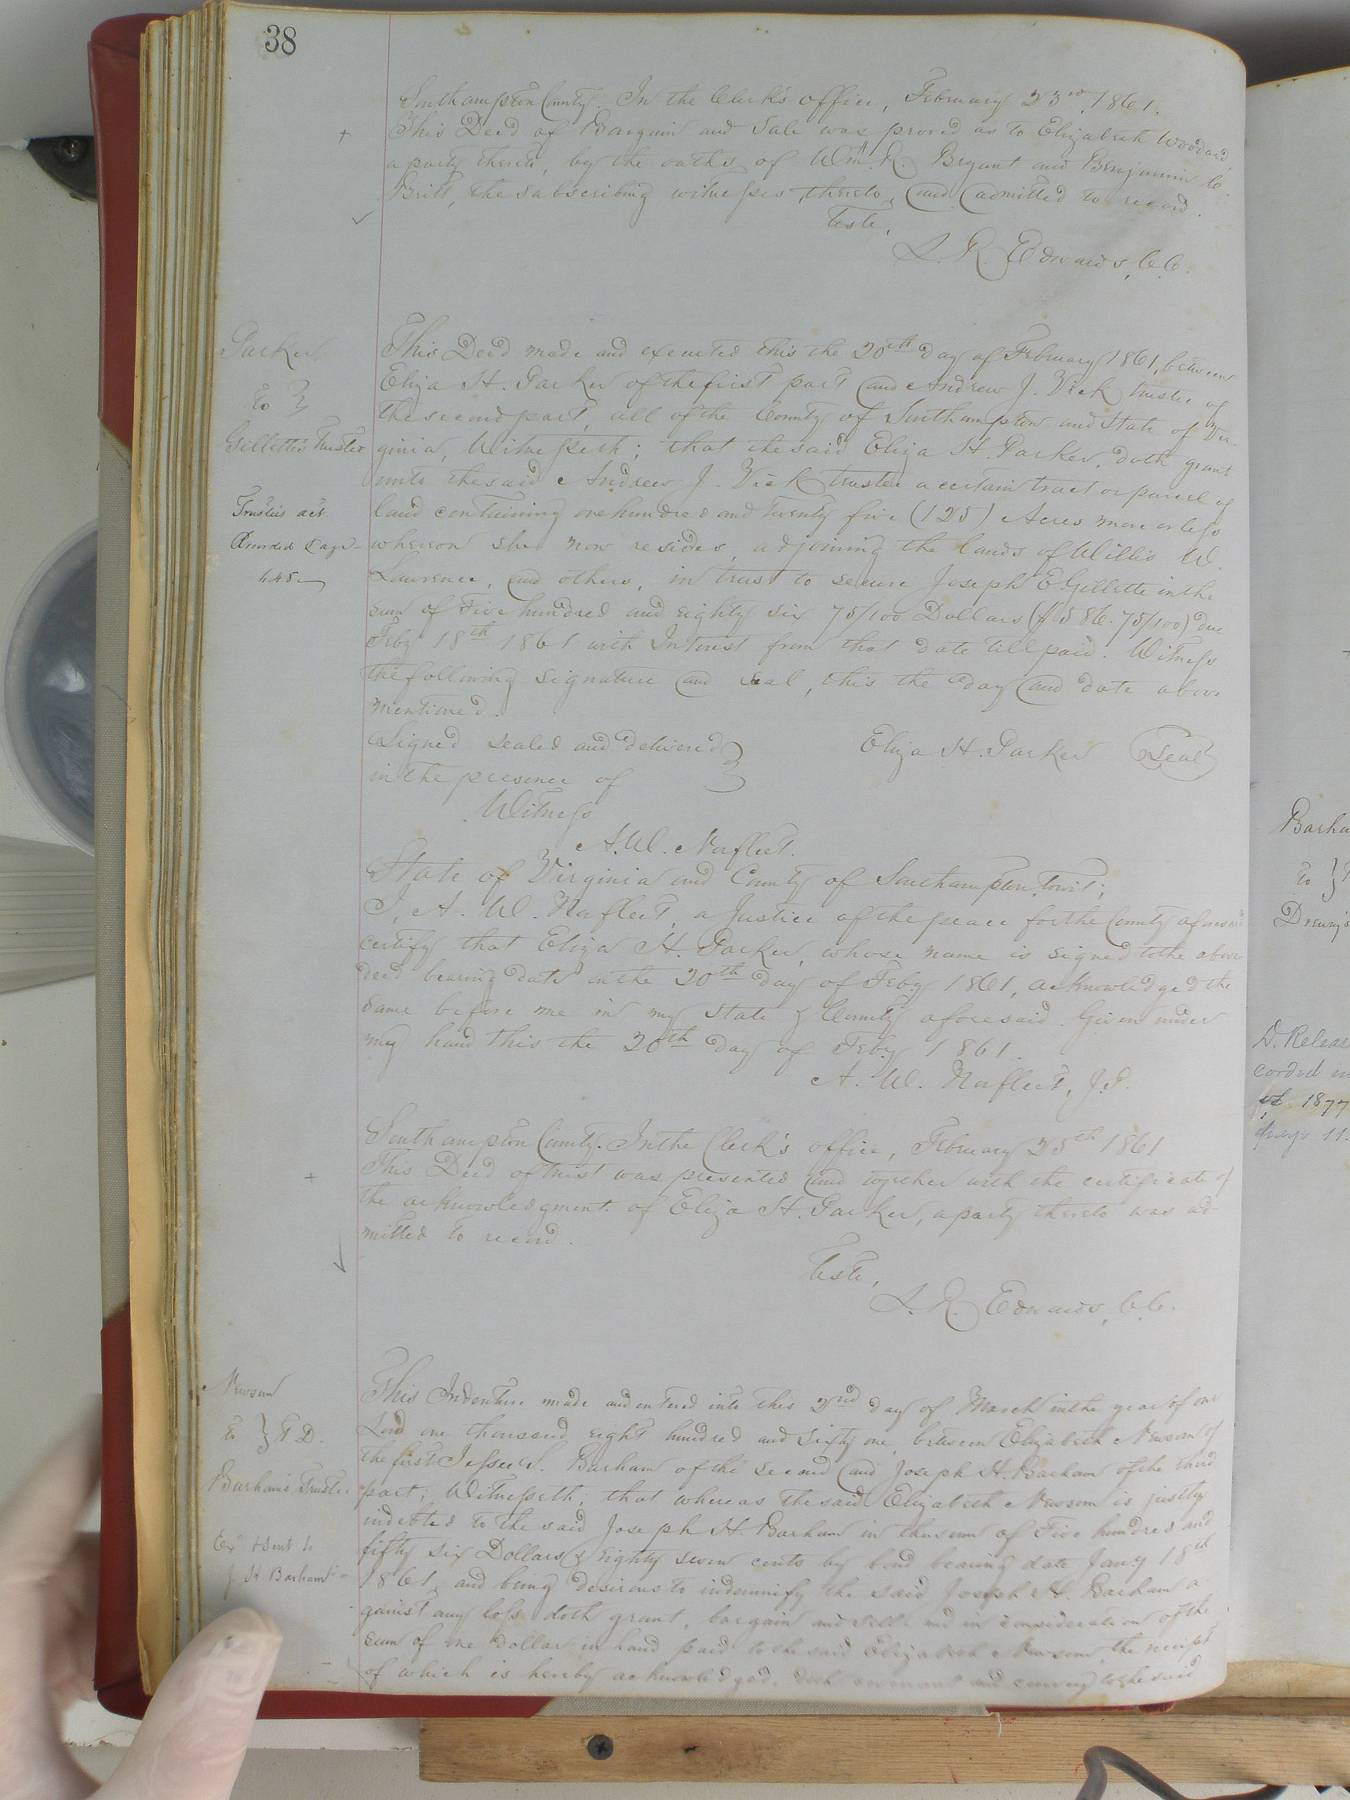 38
Southampton County. In the Clerk's office, February 23rd 1861.
This Deed of Bargain and Sale was proved as to Elizabeth Woodard,
a party thereto, by the oaths of Wm. R. Bryant and Benjamin C.
Britt, the subscribing witnesses thereto, and admitted to record.
Teste,
L. R. Edwards, C.C.
Parker
to }
Gillette's Trustee
Trustees act
Recorded Page
445
This Deed made and executed this the 20th day of February 1861, between
Eliza H. Parker of the first part and Andrew J. Vick trustee of
the second part, all of the County of Southampton and State of Vir-
ginia, Witnesseth; that the said Eliza H. Parker, doth grant
unto the said Andrew J. Vick trustee a certain tract or parcel of
land containing one hundred and twenty five (125) Acres more or less
whereon she now resides, adjoining the lands of Willis W.
Lawrence, and others, in trust to secure Joseph E. Gillette in the
sum of Five hundred and eighty six 75/100 Dollars ($586.75/100) due
Feby 18th 1861 with Interest from that date till paid. Witness
the following signature and seal, this the day and date above
mentioned.
Signed sealed and delivered }
in the presence of
Eliza H. Parker (Seal)
Witness
A. W. Norfleet.
State of Virginia and County of Southampton, towit;
I, A. W. Norfleet, a Justice of the peace for the County aforesaid
certify that Eliza H. Parker, whose name is signed to the above
deed bearing date on the 20th day of Feby 1861, acknowledged the
same before me in my State & County aforesaid. Given under
my hand this the 20th day of Feby 1861.
A. W. Norfleet, J.P.
Southampton County. In the Clerk's office, February 25th 1861
This Deed of trust was presented and together with the certificate of
the acknowledgment of Eliza H. Parker, a party thereto was ad-
mitted to record.
Teste,
L. R. Edwards, C.C.
Newsom
to } T.D.
Barham's Trustee
Exd & sent to
J. H. Barham
This Indenture made and entered into this 2nd day of March in the year of our
Lord one thousand eight hundred and sixty one, between Elizabeth Newsom of
the first Jesse S. Barham of the second and Joseph H. Barham of the third
part; Witnesseth, that whereas the said Elizabeth Newsom is justly
indebted to the said Joseph H. Barham in the sum of Five hundred and
fifty six Dollars & eighty seven cents by bond bearing date Jany 18th
1861, and being desirous to indemnify the said Joseph H. Barham a-
gainst any loss doth grant, bargain and sell and in consideration of the
sum of one dollar in hand paid to the said Elizabeth Newsom, the receipt
of which is hereby acknowledged, doth and convey to the said
Barha
to }
Drewry's
D. Releas
corded in
1877
page 11